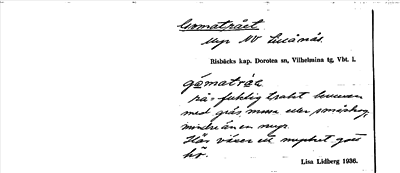 Gomatrået
Myr NV Luånäs.
Risbäcks kap. Dorotea sn, Vilhelmina tg, Vbt. l.
gómatråa
rå = fuktig trakt bevuxen
med gräs, mossa eller småskog,
mindre än en myr.
Här växer ut mycket gott
hö.
Lisa Lidberg 1936.